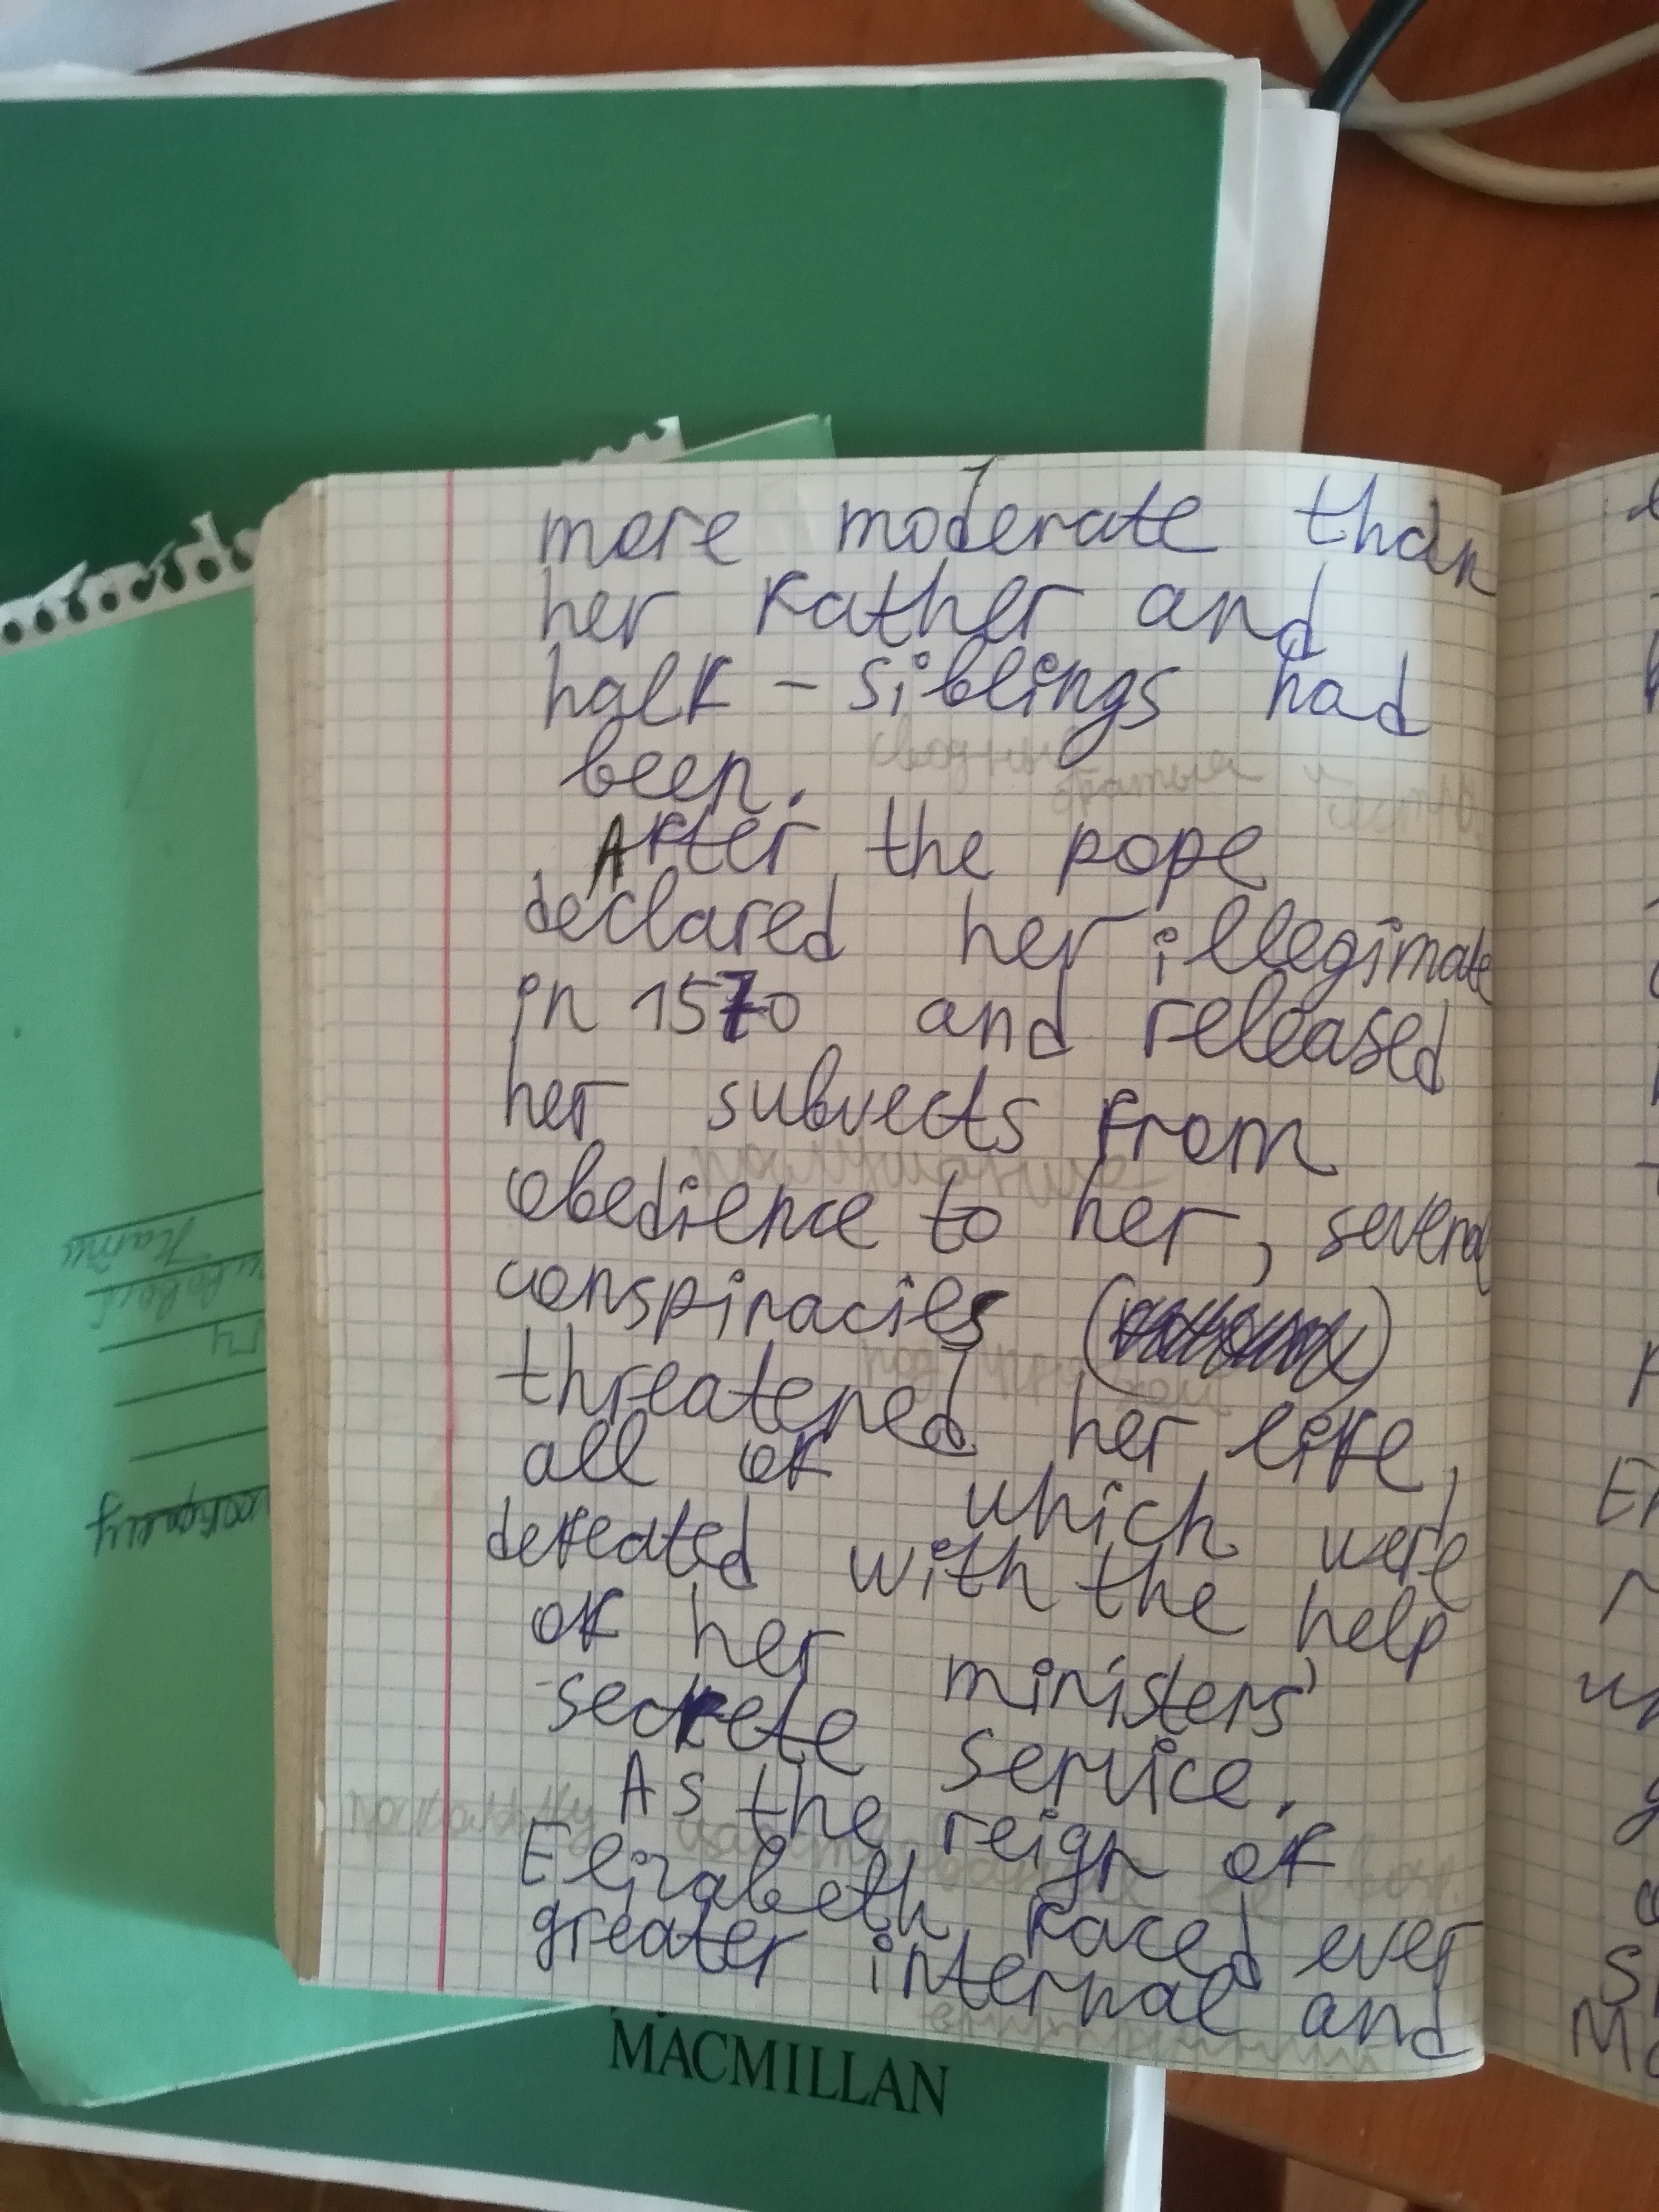 more moderate than
her father and
half - siblings had
been.
After the pope
declared her illegimate
in 1570 and released
her subvects from
obedience to her, several
conspiracies
threatened her life,
all of which were
defeated with the help
of her ministers'
secrete service.
As the reign of
Elizabeth faced ever
greater internal and
MACMILLAN